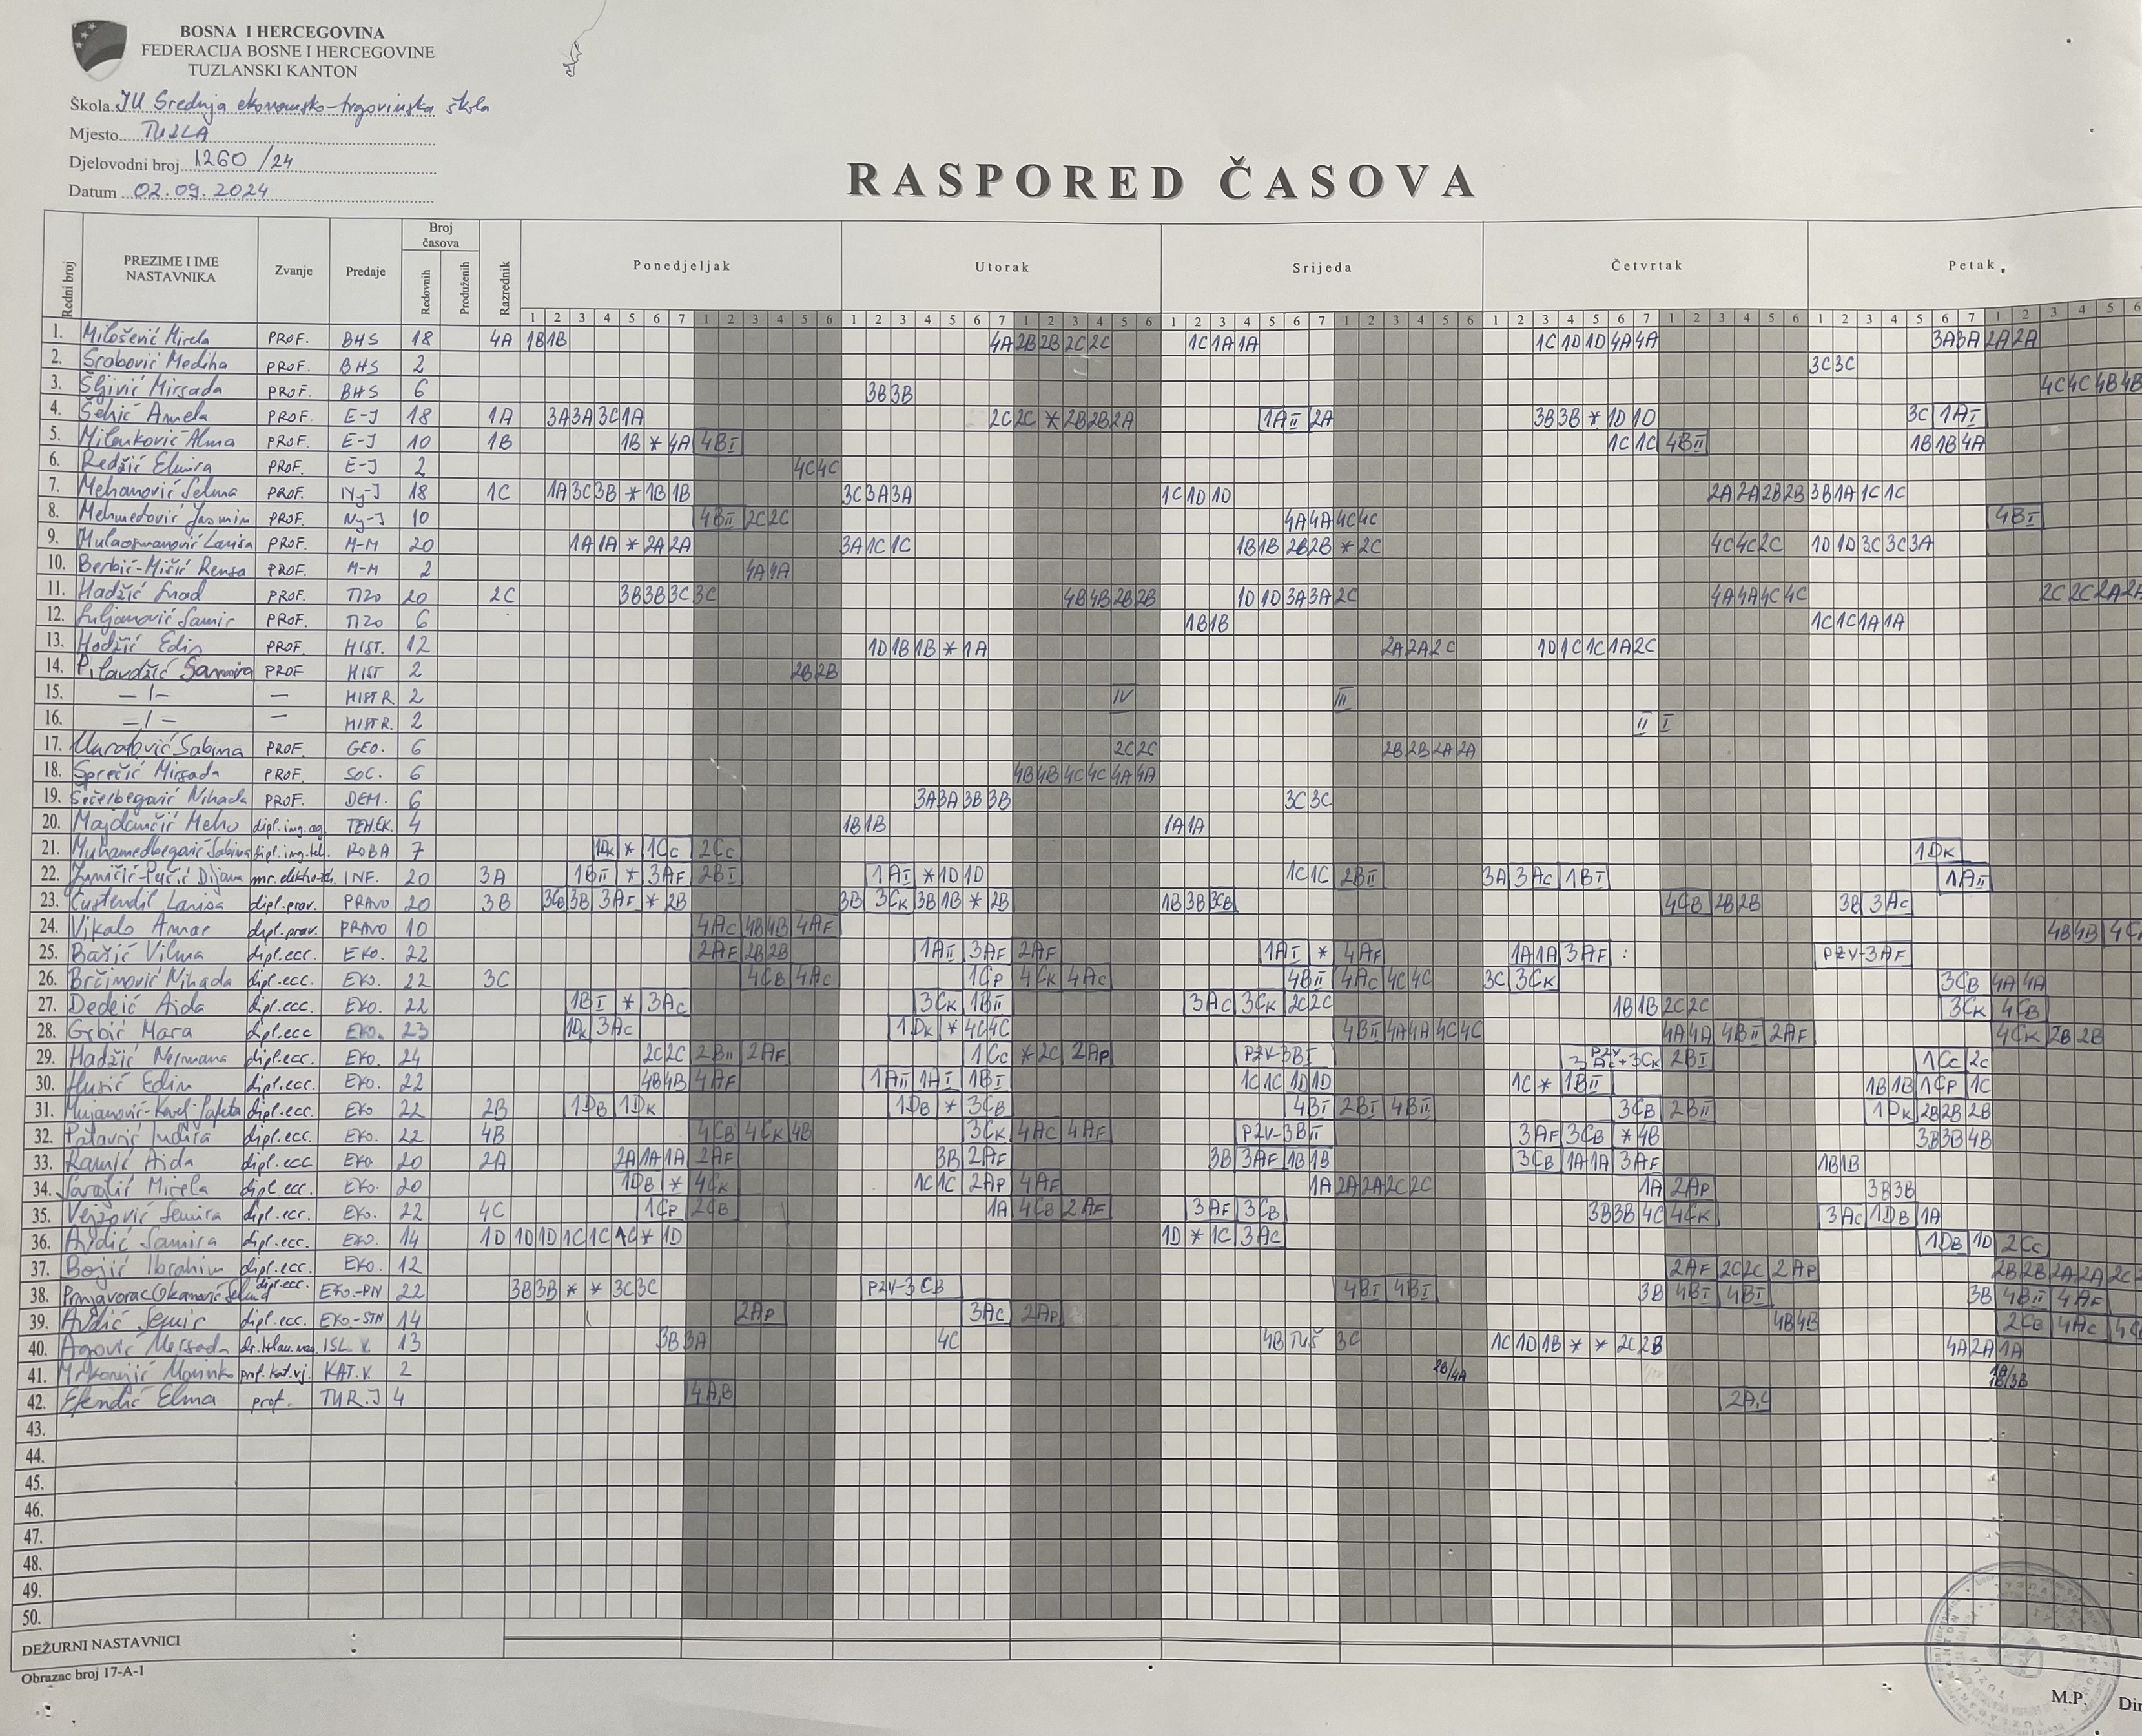 BOSNA I HERCEGOVINA
FEDERACIJA BOSNE I HERCEGOVINE
TUZLANSKI KANTON
Škola JU Srednja ekonomsko-trgovinska škola
Mjesto TUZLA
Djelovodni broj 1260/24
Datum 02.09.2024
RASPORED ČASOVA
Redni broj PREZIME I IME NASTAVNIKA Zvanje Predaje Broj časova Redovnih Produženih Razrednik Ponedjeljak Utorak Srijeda Četvrtak Petak
1 2 3 4 5 6 7 1 2 3 4 5 6 1 2 3 4 5 6 7 1 2 3 4 5 6 1 2 3 4 5 6 7 1 2 3 4 5 6 1 2 3 4 5 6 7 1 2 3 4 5 6 1 2 3 4 5 6 7 1 2 3 4 5 6
1. Milošević Mirela PROF. BHS 18 4A 1B 1B 4A 2B 2B 2C 2C 1C 1A 1A 1C 1D 1D 4A 4A 3A 3A 2A 2A
2. Srabović Mediha PROF. BHS 2 3C 3C
3. Šljivić Mirsada PROF. BHS 6 3B 3B 4C 4C 4B 4B
4. Šehić Amela PROF. E-J 18 1A 3A 3A 3C 1A 2C 2C * 2B 2B 2A 1AII 2A 3B 3B * 1D 1D 3C 1AI
5. Milenković Alma PROF. E-J 10 1B 1B * 4A 4BI 1C 1C 4BII 1B 1B 4A
6. Redžić Elmira PROF. E-J 2 4C 4C
7. Mehanović Selma PROF. Nj-J 18 1C 1A 3C 3B * 1B 1B 3C 3A 3A 1C 1D 1D 2A 2A 2B 2B 3B 1A 1C 1C
8. Mehmedović Jasmin PROF. Nj-J 10 4BII 2C 2C 4A 4A 4C 4C 4BI
9. Mulaosmanović Larisa PROF. M-M 20 1A 1A * 2A 2A 3A 1C 1C 1B 1B 2B 2B * 2C 4C 4C 2C 1D 1D 3C 3C 3A
10. Berbić-Mišić Rensa PROF. M-M 2 4A 4A
11. Hadžić PROF. TIZO 20 2C 3B 3B 3C 3C 4B 4B 2B 2B 1D 1D 3A 3A 2C 4A 4A 4C 4C 2C 2C 2A 2A
12. Suljanović Samir PROF. TIZO 6 1B 1B 1C 1C 1A 1A
13. Hodžić Edin PROF. HIST. 12 1D 1B 1B * 1A 2A 2A 2C 1D 1C 1C 1A 2C
14. Pilavdžić Samira PROF HIST 2 2B 2B
15. -||- - HIST R. 2 IV III
16. -||- - HIST R. 2 II I
17. Muratović Sabina PROF. GEO. 6 2C 2C 2B 2B 2A 2A
18. Sprečić Mirsada PROF. SOC. 6 4B 4B 4C 4C 4A 4A
19. Šećerbegović Nihada PROF. DEM. 6 3A 3A 3B 3B 3C 3C
20. Majdančić Meho dipl.ing. TEH.EK. 4 1B 1B 1A 1A
21. Muhamedbegović Sabina dipl.ing.teh. ROBA 7 1Dk * 1Cc 2Cc 1Dk
22. Dijana INF. 20 3A 1BII * 3AF 2BI 1AI * 1D 1D 1C 1C 2BII 3A 3Ac 1BI 1AII
23. Ćustendil Larisa dipl.prav. PRAVO 20 3B 3CB 3B 3AF * 2B 3B 3CK 3B 1B * 2B 1B 3B 3CB 4CB 2B 2B 3B 3Ac
24. Vikalo Amar dipl.prav. PRAVO 10 4Ac 4B 4B 4AF 4B 4B
25. Bašić Vilma dipl.ecc. EKO. 22 2AF 2B 2B 1AII 3AF 2AF 1AI * 4AF 1A 1A 3AF PZV-3AF
26. Brčinović Nihada dipl.ecc. EKO. 22 3C 4CB 4Ac 1CP 4CK 4Ac 4BII 4Ac 4C 4C 3C 3CK 3CB 4A 4A
27. Dedeić Aida dipl.ecc. EKO. 22 1BI * 3Ac 3CK 1BII 3Ac 3CK 2C 2C 1B 1B 2C 2C 3CK 4CB
28. Grbić Mara dipl.ecc EKO. 23 1Dk 3Ac 1Dk * 4C 4C 4BII 4A 4A 4C 4C 4A 4A 4BII 2AF 4CK 2B 2B
29. Hadžić Nermana dipl.ecc. EKO. 24 2C 2C 2BII 2AF 1Cc * 2C 2AP PZV-3BI 3CK 2BI 1Cc 2C
30. Husić Edin dipl.ecc. EKO. 22 4B 4B 4AF 1AII 1AI 1BI 1C 1C 1D 1D 1C * 1BII 1B 1B 1CP 1C
31. dipl.ecc. EKO 22 2B 1DB 1Dk 1DB * 3CB 4BI 2BI 4BII 3CB 2BII 1Dk 2B 2B 2B
32. Indira dipl.ecc. EKO. 22 4B 4CB 4CK 4B 3CK 4Ac 4AF PZV-3BII 3AF 3CB * 4B 3B 3B 4B
33. Ramić Aida dipl.ecc EKO 20 2A 2A 1A 1A 2AF 3B 2AF 3B 3AF 1B 1B 3CB 1A 1A 3AF 1B 1B
34. Mirela dipl ecc. EKO. 20 1DB * 4CK 1C 1C 2AP 4AF 1A 2A 2A 2C 2C 1A 2AP 3B 3B
35. Vejzović Semira dipl.ecc. EKO. 22 4C 1CP 2CB 1A 4CB 2AF 3AF 3CB 3B 3B 4C 4CK 3Ac 1DB 1A
36. Avdić Samira dipl.ecc. EKO. 14 1D 1D 1D 1C 1C 1C * 1D 1D * 1C 3Ac 1DB 1D 2Cc
37. Bojić Ibrahim dipl.ecc. EKO. 12 2AF 2C 2C 2AP 2B 2B 2A 2A 2C
38. Prnjavorac Okanović dipl.ecc. EKO.-PN 22 3B 3B * * 3C 3C PZV-3CB 4BI 4BI 3B 4BI 4BI 3B 4BII 4AF
39. Avdić Semir dipl.ecc. EKO-STN 14 2AP 3Ac 2AP 4B 4B 2CB 4Ac
40. Agović Mersada ISL. V. 13 3B 3A 4C 4B 3C 1C 1D 1B * * 2C 2B 4A 2A 1A
41. Marinko prof.kat.vj. KAT.V. 2 2B/4A 1B/3B
42. Efendić Elma prof. TUR.J 4 4A,B 2A,C
43.
44.
45.
46.
47.
48.
49.
50.
DEŽURNI NASTAVNICI
Obrazac broj 17-A-1
M.P. Dir